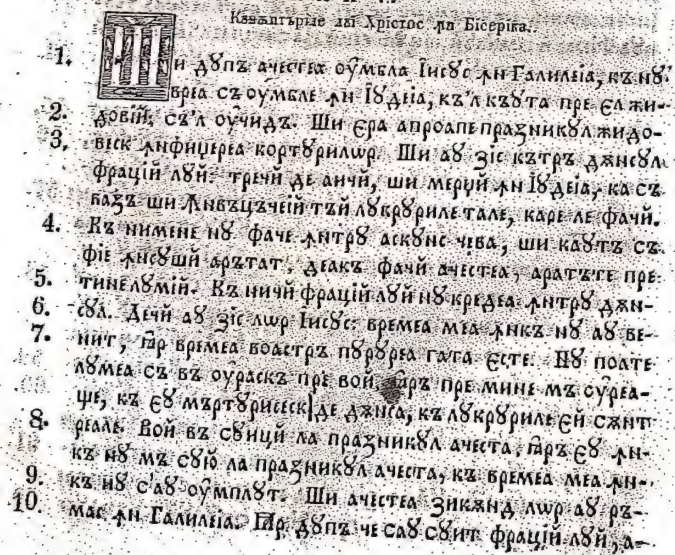 Кꙋвѫнтѣрїле луй Хрїстос ꙟн Бїсерїка.
1. Ши дꙋпъ ачестѣ оумбла Іисꙋс ꙟн Галилеіа, къ нꙋ
врea съ оумбле ꙟн Іꙋдеіа, къ'л кꙋта пре єл жи-
2. довій, съ'л оучидъ. Ши єра апроапе празникꙋл жидо-
3. веск ꙟнфиџерѣ кортꙋрилѡр. Ши аꙋ зіс кътръ дѫнсꙋл
фрацій лꙋй: тречй де аичй, ши мерџй ꙟн Іꙋдеіа, ка съ
вазъ ши ꙟнвъцъчеій тъй лꙋкрꙋриле тале, каре ле фачй.
4. Къ нимене нꙋ фаче ꙟнтрꙋ аскꙋнс чева, ши каꙋтъ съ
фіе ꙟнсꙋшй арътат, деакъ фачй ачестеа, аратъте пре
5. тине лꙋмій. Къ ничй фрацій лꙋй нꙋ кредеа ꙟнтрꙋ дѫн-
6. сꙋл. Дечй аꙋ зіс лѡр Іисꙋс: времеа меа ꙟнкъ нꙋ аꙋ ве-
7. нит, ꙗр времеа воастръ пꙋрꙋреа гата єсте. Нꙋ поате
лꙋмеа съ въ оураскъ пре вой, ꙗръ пре мине мъ оуреа-
ще, къ єꙋ мъртꙋрисеск де дѫнса, къ лꙋкрꙋриле єй сѫнт
8. реале. Вой въ сꙋицй ла празникꙋл ачеста, ꙗръ єꙋ ꙟн-
къ нꙋ мъ сꙋю ла празникꙋл ачеста, къ времеа меа ꙟн-
9. къ нꙋ с'аꙋ оумплꙋт. Ши ачестеа зикѫнд лѡр аꙋ ръ-
10. мас ꙟн Галилеіа. Ꙗр дꙋпъ че саꙋ сꙋит фрацій лꙋй, а-